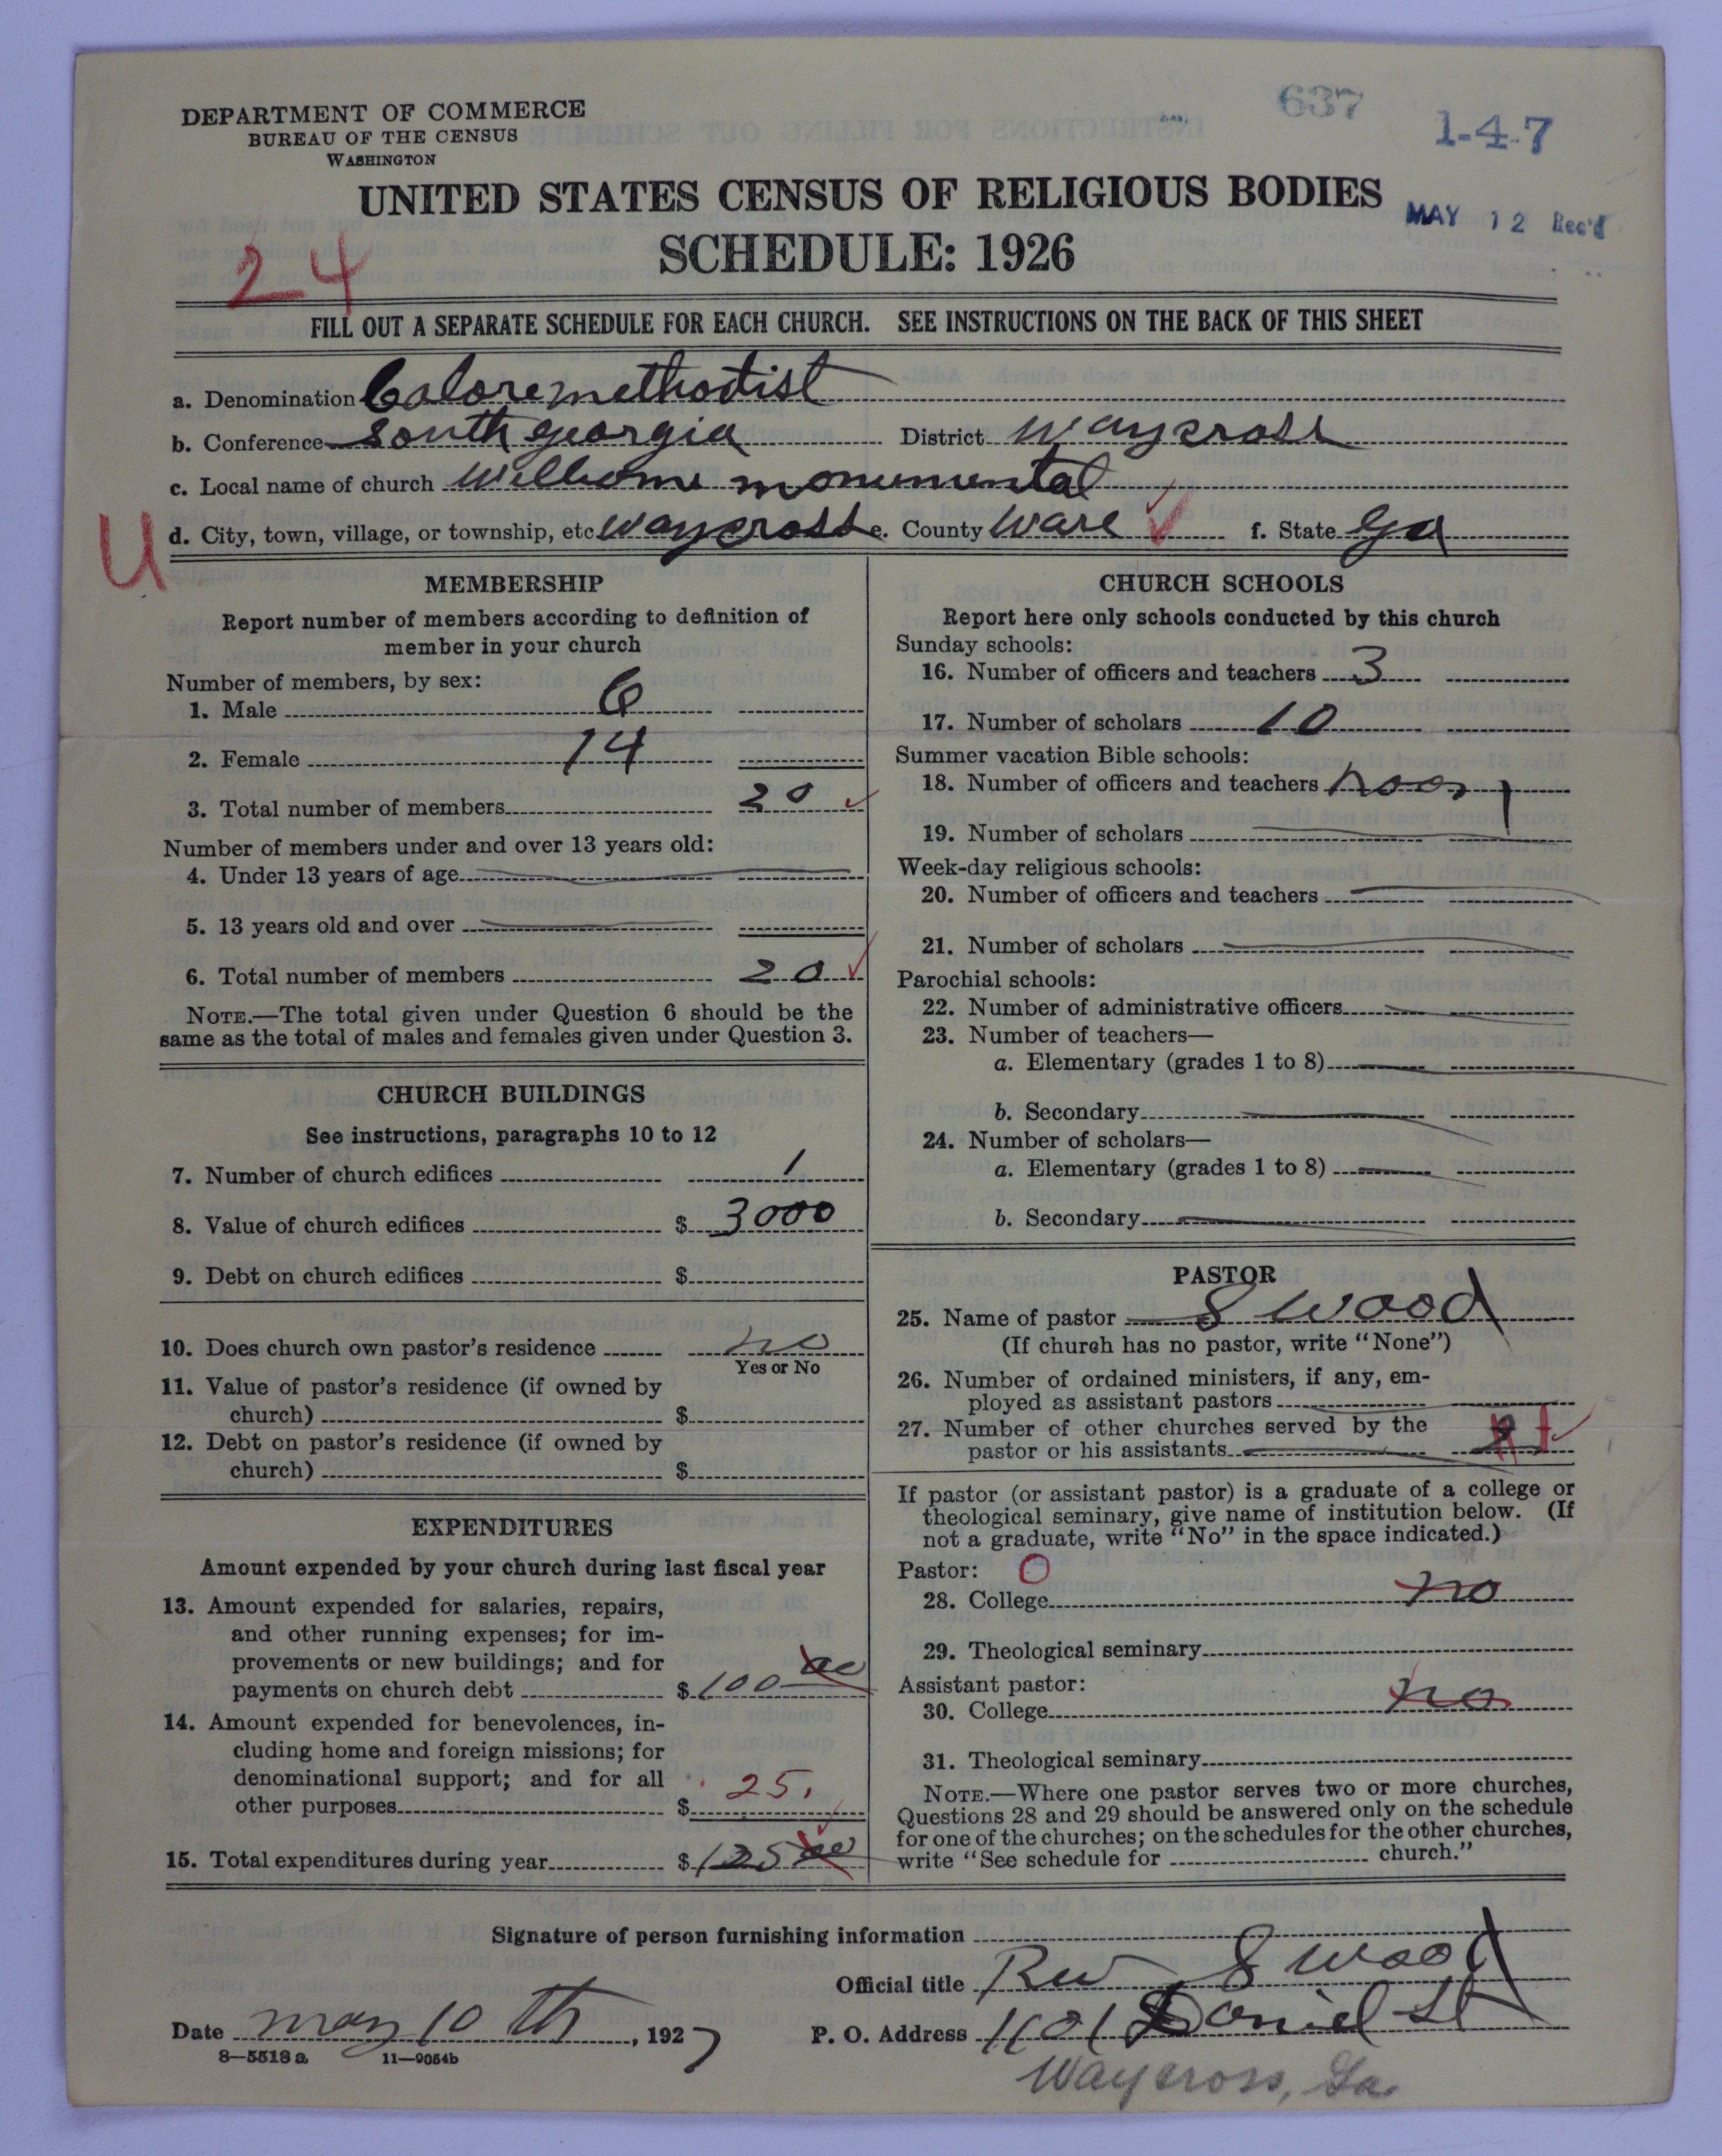 637
1-4-7
DEPARTMENT OF COMMERCE
BUREAU OF THE CENSUS
WASHINGTON
UNITED STATES CENSUS OF RELIGIOUS BODIES
MAY 12 Rec'd
SCHEDULE: 1926
24
FILL OUT A SEPARATE SCHEDULE FOR EACH CHURCH. SEE INSTRUCTIONS ON THE BACK OF THIS SHEET
a. Denomination Calore methodist
b. Conference South georgia District Waycross
c. Local name of church monumental
U d. City, town, village, or township, etc. Waycross e. County Ware f. State Ga
MEMBERSHIP
Report number of members according to definition of
member in your church
Number of members, by sex:
1. Male 6
2. Female 14
3. Total number of members 20
Number of members under and over 13 years old:
4. Under 13 years of age
5. 13 years old and over
6. Total number of members 20
NOTE.—The total given under Question 6 should be the
same as the total of males and females given under Question 3.
CHURCH BUILDINGS
See instructions, paragraphs 10 to 12
7. Number of church edifices 1
8. Value of church edifices $ 3000
9. Debt on church edifices $
10. Does church own pastor's residence no
Yes or No
11. Value of pastor's residence (if owned by
church) $
12. Debt on pastor's residence (if owned by
church) $
EXPENDITURES
Amount expended by your church during last fiscal year
13. Amount expended for salaries, repairs,
and other running expenses; for im-
provements or new buildings; and for
payments on church debt $ 100 00
14. Amount expended for benevolences, in-
cluding home and foreign missions; for
denominational support; and for all
other purposes $ 25.
15. Total expenditures during year $ 125 00
CHURCH SCHOOLS
Report here only schools conducted by this church
Sunday schools:
16. Number of officers and teachers 3
17. Number of scholars 10
Summer vacation Bible schools:
18. Number of officers and teachers
19. Number of scholars
Week-day religious schools:
20. Number of officers and teachers
21. Number of scholars
Parochial schools:
22. Number of administrative officers
23. Number of teachers—
a. Elementary (grades 1 to 8)
b. Secondary
24. Number of scholars—
a. Elementary (grades 1 to 8)
b. Secondary
PASTOR
25. Name of pastor S Wood
(If church has no pastor, write "None")
26. Number of ordained ministers, if any, em-
ployed as assistant pastors
27. Number of other churches served by the
pastor or his assistants
If pastor (or assistant pastor) is a graduate of a college or
theological seminary, give name of institution below. (If
not a graduate, write "No" in the space indicated.)
Pastor: O
28. College no
29. Theological seminary
Assistant pastor:
30. College no
31. Theological seminary
NOTE.—Where one pastor serves two or more churches,
Questions 28 and 29 should be answered only on the schedule
for one of the churches; on the schedules for the other churches,
write "See schedule for church."
Signature of person furnishing information
Official title Rev S Wood
Date may 10 th, 1927 P. O. Address 1101 Daniel St
8—5518 a 11—9054b
Waycross, Ga.